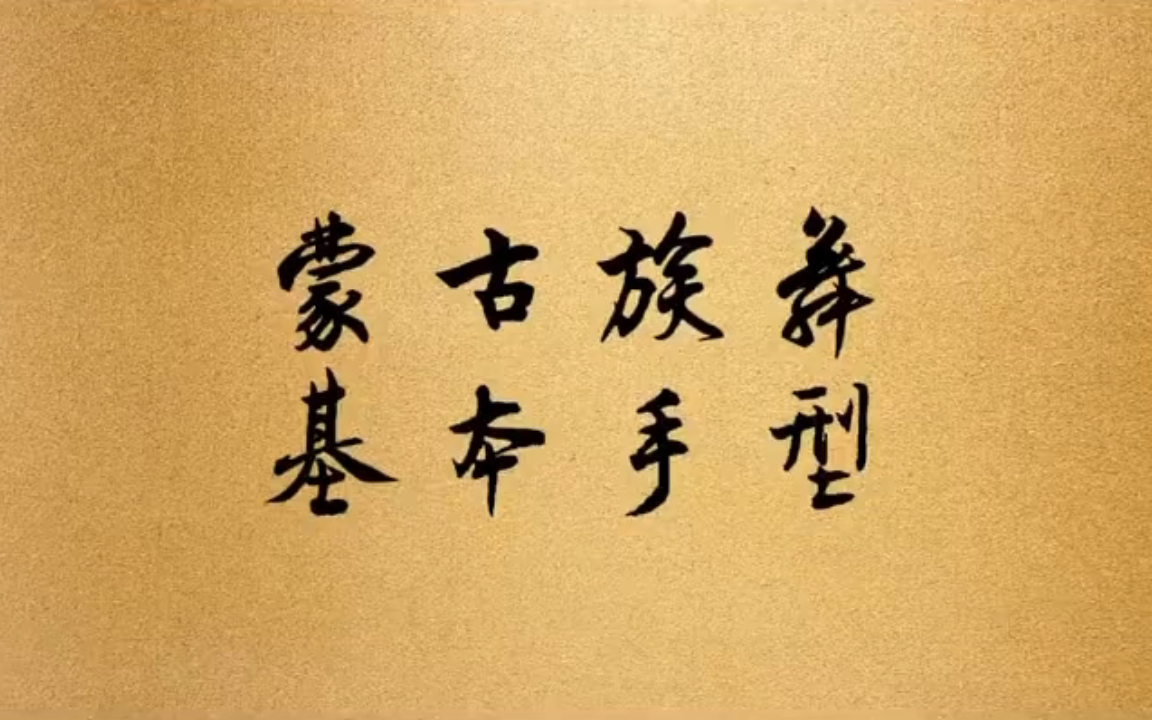 蒙古族舞
基本手型